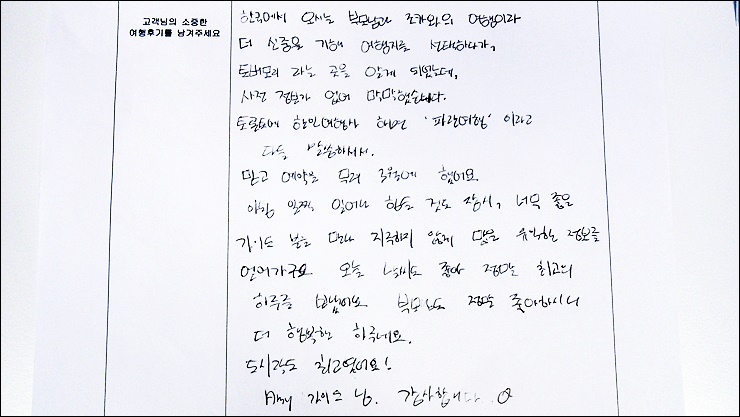 고객님의 소중한
여행후기를 남겨주세요
한국에서 오시는 부모님과 조카와의 여행이라
더 신중을 기해 여행지를 선택하다가,
토버모리 라는 곳을 알게 되었는데,
사전 정보가 없어 막막했습니다.
토론토에 한인여행사 하면 '파란여행' 이라고
다들 말씀하셔서.
믿고 예약을 무려 3월에 했어요.
아침 일찍 일어나 힘든 것도 잠시, 너무 좋은
가이드 분을 만나 지루하지 않게 많은 유익한 정보를
얻어가구요. 오늘 날씨도 좋아 정말 최고의
하루를 보냈어요. 부모님도 정말 좋아하시니
더 행복한 하루네요.
도시락도 최고였어요!
Amy 가이드 님. 감사합니다.